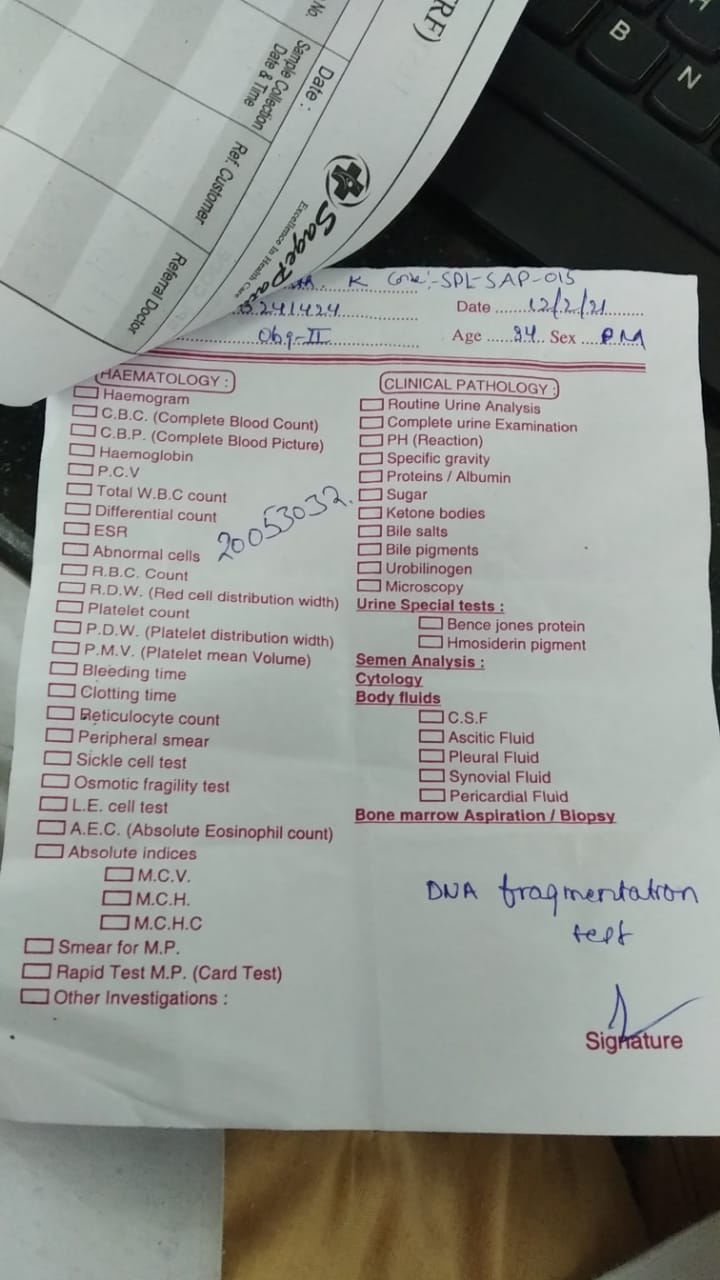 RF)
No.
Date :
Sample Collection
Date & Time
Ref. Customer
Referral Doctor
Excellence In Health Care
K Code:-SPL-SAP-015
3241424 Date 12/2/21
Obg-II Age 34 Sex
HAEMATOLOGY :
Haemogram
C.B.C. (Complete Blood Count)
C.B.P. (Complete Blood Picture)
Haemoglobin
P.C.V
Total W.B.C count
Differential count
ESR
Abnormal cells
R.B.C. Count
R.D.W. (Red cell distribution width)
Platelet count
P.D.W. (Platelet distribution width)
P.M.V. (Platelet mean Volume)
Bleeding time
Clotting time
Reticulocyte count
Peripheral smear
Sickle cell test
Osmotic fragility test
L.E. cell test
A.E.C. (Absolute Eosinophil count)
Absolute indices
M.C.V.
M.C.H.
M.C.H.C
Smear for M.P.
Rapid Test M.P. (Card Test)
Other Investigations :
20053032.
CLINICAL PATHOLOGY :
Routine Urine Analysis
Complete urine Examination
PH (Reaction)
Specific gravity
Proteins / Albumin
Sugar
Ketone bodies
Bile salts
Bile pigments
Urobilinogen
Microscopy
Urine Special tests :
Bence jones protein
Hmosiderin pigment
Semen Analysis :
Cytology
Body fluids
C.S.F
Ascitic Fluid
Pleural Fluid
Synovial Fluid
Pericardial Fluid
Bone marrow Aspiration / Biopsy
DNA fragmentation
test
Signature
B
N